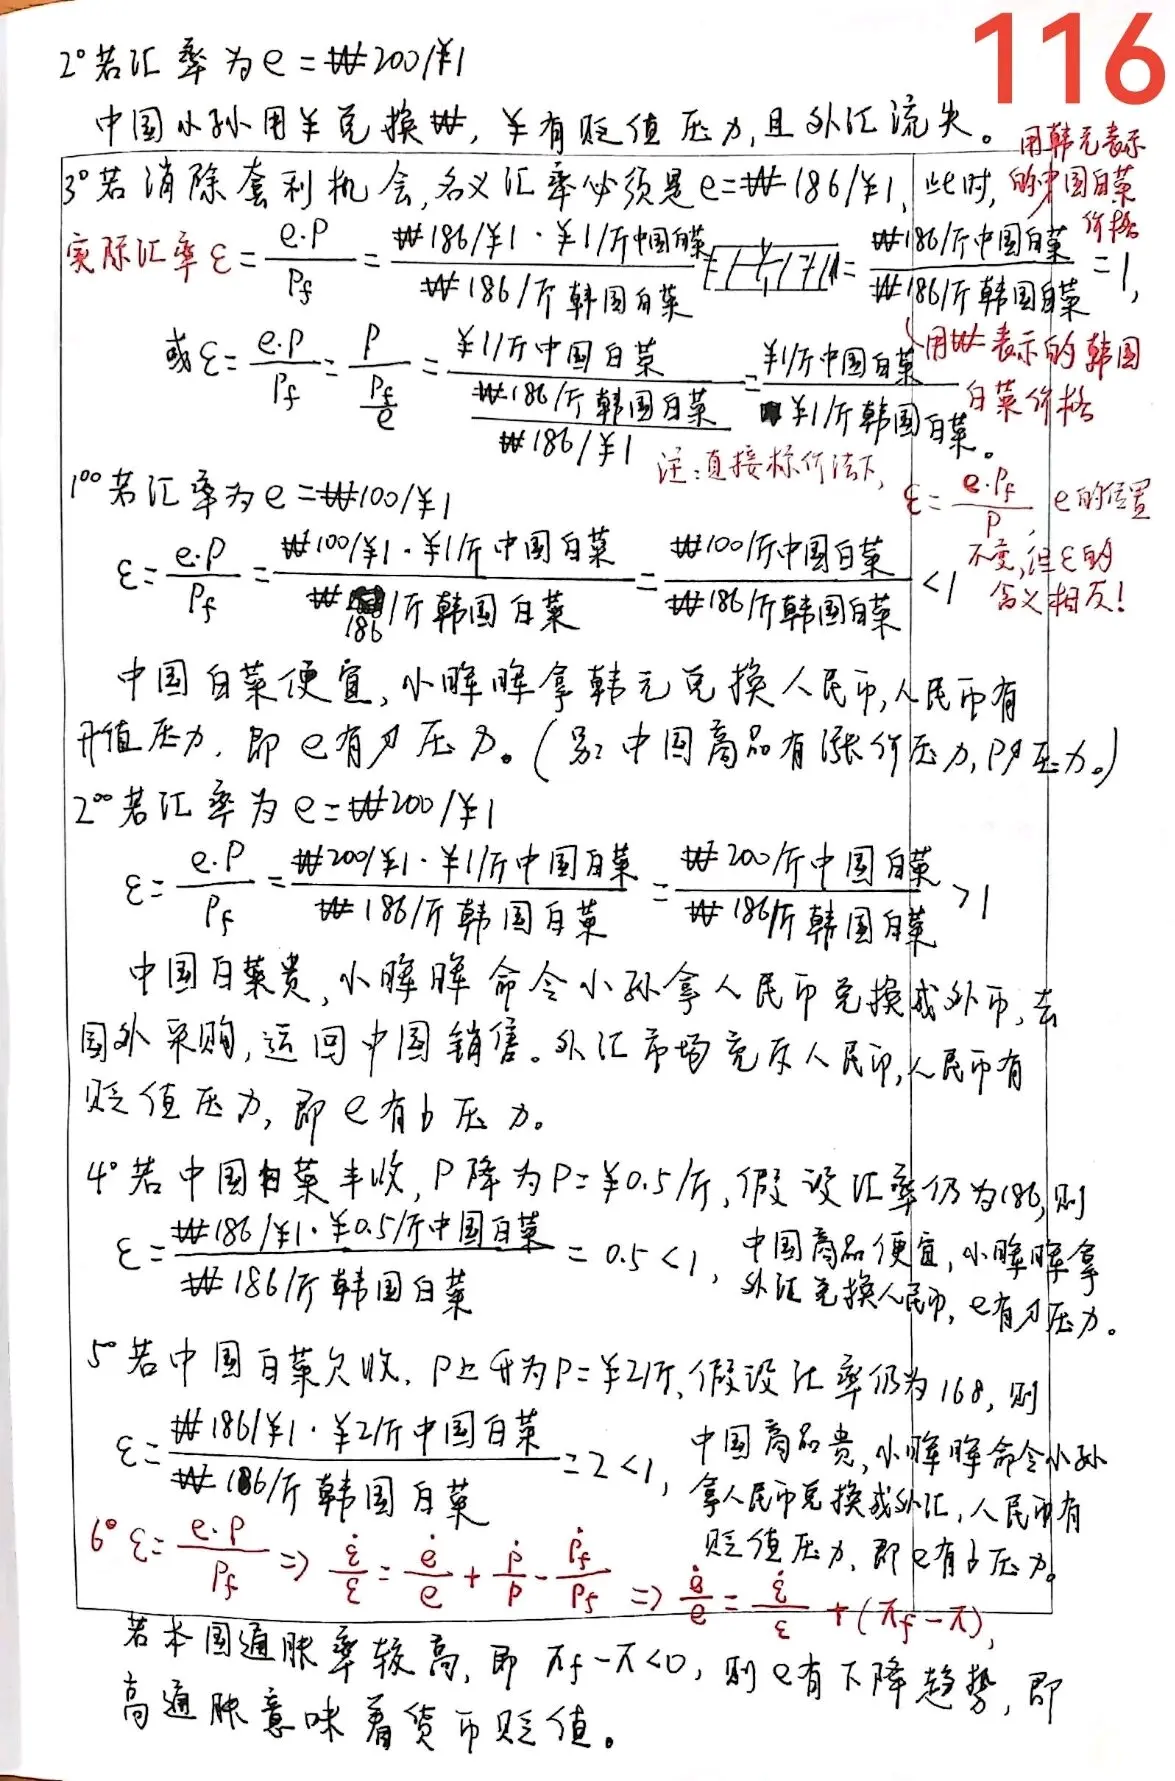 116
2°若汇率为e=₩200/¥1
中国小孙用¥兑换₩,¥有贬值压力,且外汇流失。
用韩元表示
的中国白菜
价格
3°若消除套利机会,名义汇率必须是e=₩186/¥1,此时,
实际汇率ε=e·P/Pf=(₩186/¥1·¥1/斤中国白菜)/(₩186/斤韩国白菜)=(₩186/斤中国白菜)/(₩186/斤韩国白菜)=1,
用₩表示的韩国
白菜价格
或ε=e·P/Pf=P/(Pf/e)=(¥1/斤中国白菜)/((₩186/斤韩国白菜)/(₩186/¥1))=(¥1/斤中国白菜)/(¥1/斤韩国白菜)。
注:直接标价法下,
ε=e·Pf/P,e的位置
不变,但ε的
含义相反!
1°°若汇率为e=₩100/¥1
ε=e·P/Pf=(₩100/¥1·¥1/斤中国白菜)/(₩186/斤韩国白菜)=(₩100/斤中国白菜)/(₩186/斤韩国白菜)<1
中国白菜便宜,小晖晖拿韩元兑换人民币,人民币有
升值压力,即e有↗压力。(另:中国商品有涨价压力,P↗压力。)
2°°若汇率为e=₩200/¥1
ε=e·P/Pf=(₩200/¥1·¥1/斤中国白菜)/(₩186/斤韩国白菜)=(₩200/斤中国白菜)/(₩186/斤韩国白菜)>1
中国白菜贵,小晖晖命令小孙拿人民币兑换成外币,去
国外采购,运回中国销售。外汇市场充斥人民币,人民币有
贬值压力,即e有↘压力。
4°若中国白菜丰收,P降为P=¥0.5/斤,假设汇率仍为186,则
ε=(₩186/¥1·¥0.5/斤中国白菜)/(₩186/斤韩国白菜)=0.5<1,
中国商品便宜,小晖晖拿
外汇兑换人民币,e有↗压力。
5°若中国白菜欠收,P上升为P=¥2/斤,假设汇率仍为168,则
ε=(₩186/¥1·¥2/斤中国白菜)/(₩186/斤韩国白菜)=2<1,
中国商品贵,小晖晖命令小孙
拿人民币兑换成外汇,人民币有
贬值压力,即e有↘压力。
6°ε=e·P/Pf⇒ε̇/ε=ė/e+Ṗ/P-Ṗf/Pf⇒ė/e=ε̇/ε+(πf-π),
若本国通胀率较高,即πf-π<0,则e有下降趋势,即
高通胀意味着货币贬值。